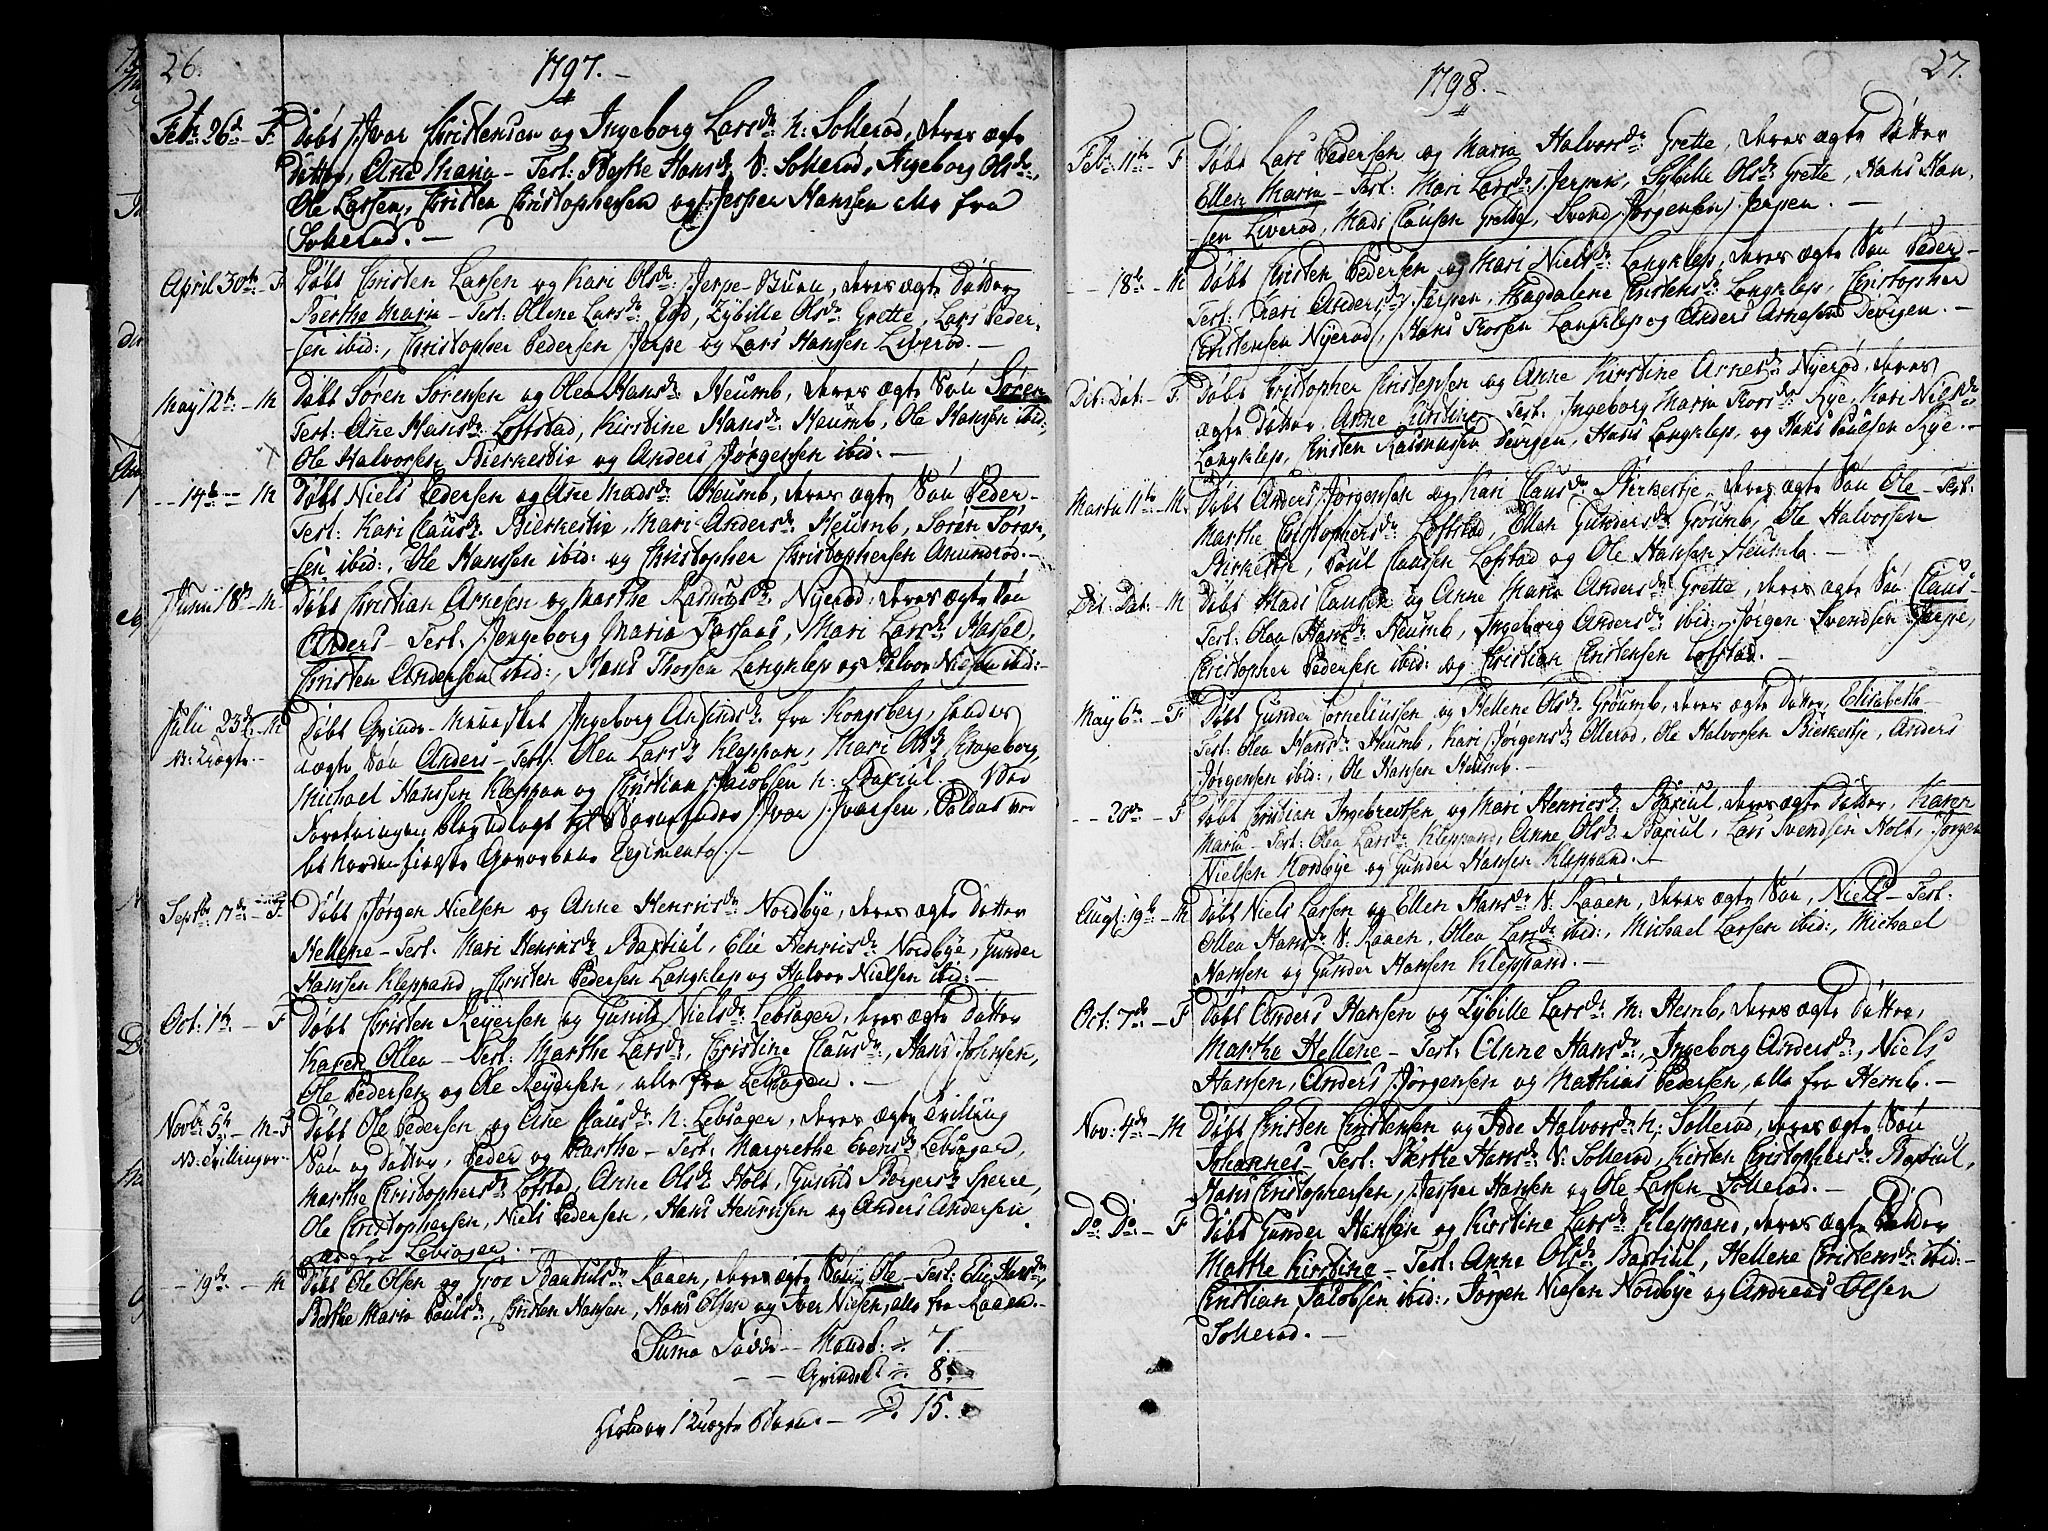 26.
1797.
Febr: 26de – F Døbt Ivar Christensen og Ingeborg Larsdr: N: Sollerød, deres ægte
Datter, Ane Maria – Test: Berthe Hansdr: S: Sollerød, Ingeborg Olsdr:,
Ole Larsen, Christen Christophersen og Jesper Hansen alle fra
Sollerød. –
April 30te – F Døbt Christen Larsen og Kari Olsdr: Jerpe, deres ægte Datter
Berthe Maria – Test: Ollene Larsdr:, Zybille Olsdr: Grette, Lars Peder-
sen ibid:, Christopher Pedersen Jerpe og Lars Hansen Liverød. –
May 12te – M Døbt Søren Sørensen og Olea Hansdr: Heumb, deres ægte Søn Søren
Test: Ane Hansdr: Løftstad, Kirstine Hansdr: Heumb, Ole Hansen ibid:,
Ole Halvorsen Bierkestie og Anders Jørgensen ibid: –
– 14de – M Døbt Niels Pedersen og Ane Madsdr: Heumb, deres ægte Søn Peder –
Test: Kari Clausdr: Bierkestie, Mari Andersdr: Heumb, Søren Søren-
sen ibid:, Ole Hansen ibid: og Christopher Christophersen Amundrød. –
Junii 18de – M Døbt Christian Arnesen og Marthe Rasmusdr: Nyerød, deres ægte Søn
Anders – Test: Ingeborg Maria, Mari Larsdr: Hassel,
Christen Andersen ibid:, Hans Thorsen Langklep og Halvor Nielsen ibid: –
Julii 23de – M Døbt Qvinde-Mennesket Ingeborg Amundsdr: fra Kongsberg, hendes
N: Uægte – uægte Søn Anders – Test: Olea Larsdr: Kleppan, Mari Olsdr:
Michael Hansen Kleppan og Christian Jacobsen N: Barkiul. – Ved
Forretningen blev udlagt til Barnefader Iver Iversen, Soldat ved
Regiment. –
Septbr: 17de – F Døbt Jørgen Nielsen og Anne Henrichsdr: Nordbye, deres ægte Datter
Hellene – Test: Mari Henrichsdr:, Elie Henrichsdr: Nordbye, Gunder
Hansen Kleppand, Christen Pedersen Langklep og Halvor Nielsen ibid: –
Oct: 1te – F Døbt Christen Reyersen og Gunild Nielsdr: Lebsager, deres ægte Datter
Karen Ollea – Test: Marthe Larsdr:, Christine Clausdr:, Hans Johnsen,
Ole Pedersen og Ole Reyersen, alle fra Lebsager. –
Novbr: 5te – M-F Døbt Ole Pedersen og Ane Clausdr: N: Lebsager, deres ægte Tvilling
N: Tvillinger – Søn og Datter, Peder og Marthe – Test: Margrethe Evensdr: Lebsager,
Marthe Christophersdr: Løfstad, Anne Olsdr: Holt, Gunild Børgersdr: Sperre,
Ole Christophersen, Niels Pedersen, Hans Henrichsen og Anders Andersen
alle fra Lebsager. –
– 19de – M Døbt Ole Olsen og Groe Raaen, deres ægte Søn, Ole – Test: Elie Hansdr:,
Berthe Maria Paulsdr:, Christen Hansen, Hans Olsen og Iver Nielsen, alle fra Raaen. –
Suma Fødde – Mandk: 7.
– – Qvindek: 8.
15.
herunder 1 Uægte Barn. –
27.
1798.
Febr: 11te – F Døbt Lars Pedersen og Maria Halvorsdr: Grette, deres ægte Datter
Ellen Maria – Test: Mari Larsdr: Jerpen, Sybille Olsdr: Grette, Hans Han-
sen Liverød, Mads Clausen Grette, Svend Jørgensen Jerpen. –
– – 18de – M Døbt Christen Pedersen og Mari Nielsdr: Langklep, deres ægte Søn Peder –
Test: Kari Andersdr: Jerpen, Magdalene Christensdr: Langklep, Christopher
Christensen Nyerød, Hans Thorsen Langklep og Anders Arnesen Devigen. –
Dit: Dat: – F Døbt Christopher Christensen og Anne Kirstine Arnesdr: Nyerød, deres
ægte Datter, Anne Kirstine – Test: Ingeborg Maria Thorsdr: Rye, Kari Nielsdr:
Langklep, Christen Rasmussen Devigen, Hans Langklep, og Hans Poulsen Rye. –
Martii 11te – M Døbt Anders Jørgensen og Kari Clausdr: Birkestje, deres ægte Søn Ole – Test:
Marthe Christophersdr: Løftstad, Ellen Gundersdr: Groumb, Ole Halvorsen
Birkestje, Poul Clausen Løfstad og Ole Hansen Heumb. –
Dit: Dat: – M Døbt Mads Clausen og Anne Maria Andersdr: Grette, deres ægte Søn Claus –
Test: Olea Hansdr: Heumb, Ingeborg Andersdr: ibid:, Jørgen Svendsen Jerpe,
Christopher Pedersen ibid: og Christian Christensen Løfstad. –
May 6te – F Døbt Gunder Corneliussen og Hellene Olsdr: Groumb, deres ægte Datter, Elisabeth –
Test: Olea Hansdr: Heumb, Kari Jørgensdr: Ollerød, Ole Halvorsen Bierkestje, Anders
Jørgensen ibid:, Ole Hansen Heumb. –
– – 20de – F Døbt Christian Ingebretsen og Mari Henricsdr: Barkiul, deres ægte Datter, Karen
Maria – Test: Olea Larsdr: Kleppand, Anne Olsdr: Barkiul, Lars Svendsen Holt, Jørgen
Nielsen Nordbye og Gunder Hansen Kleppand. –
Aug: 19de – M Døbt Niels Larsen og Ellen Hansdr: N: Raaen, deres ægte Søn, Niels – Test:
Ellen Hansdr: N: Raaen, Ollea Larsdr: ibid:, Michael Larsen ibid:, Michael
Hansen og Gunder Hansen Kleppand. –
Oct: 7de – F Døbt Anders Hansen og Zybille Larsdr: M: Hemb, deres ægte Datter,
Marthe Hellene – Test: Anne Hansdr:, Ingeborg Andersdr:, Niels
Hansen, Anders Jørgensen og Mathias Pedersen, alle fra Hemb. –
Nov: 4de – M Døbt Christen Christensen og Idde Halvorsdr: N: Sollerød, deres ægte Søn
Johannes – Test: Berthe Hansdr: S: Sollerød, Kirsten Christophersdr: Barkiul,
Hans Christophersen, Jesper Hansen og Ole Larsen Sollerød. –
Do: Do: – F Døbt Gunder Hansen og Kirstine Larsdr: Kleppane, deres ægte Datter
Marthe Kirstine – Test: Anne Olsdr: Barkiul, Hellene Christensdr: ibid: –
Christian Jacobsen ibid:, Jørgen Nielsen Nordbye og Andreas Olsen
Sollerød. –